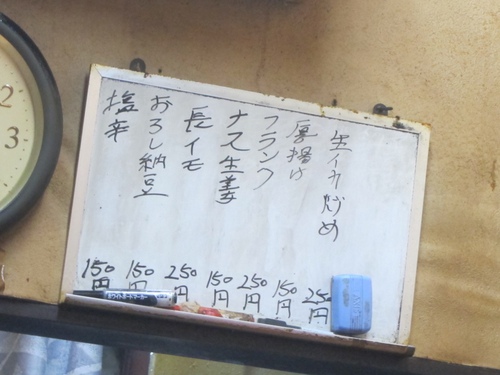 生イカ炒め 250円
厚揚げ 150円
フランク 250円
ナス生姜 150円
長イモ 250円
おろし納豆 150円
塩辛 150円
2
3